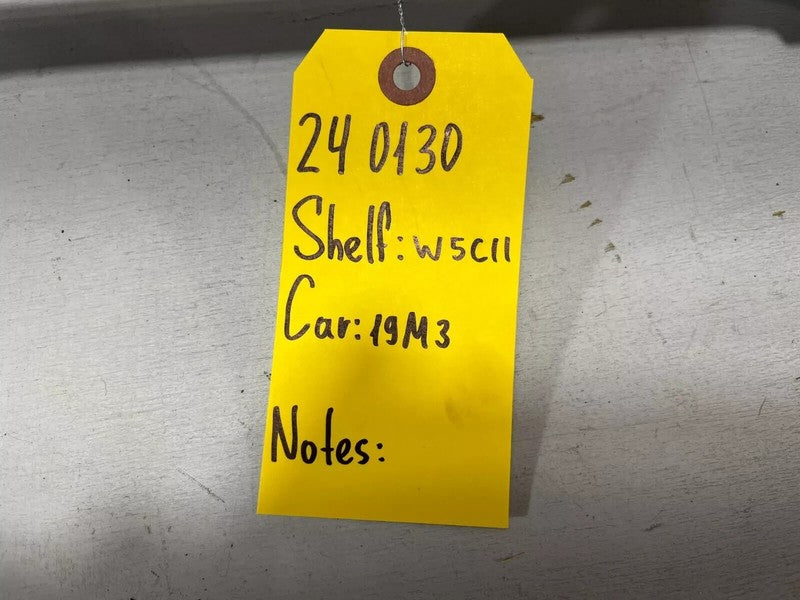 24 0130
Shelf: W5C11
Car: 19M3
Notes: